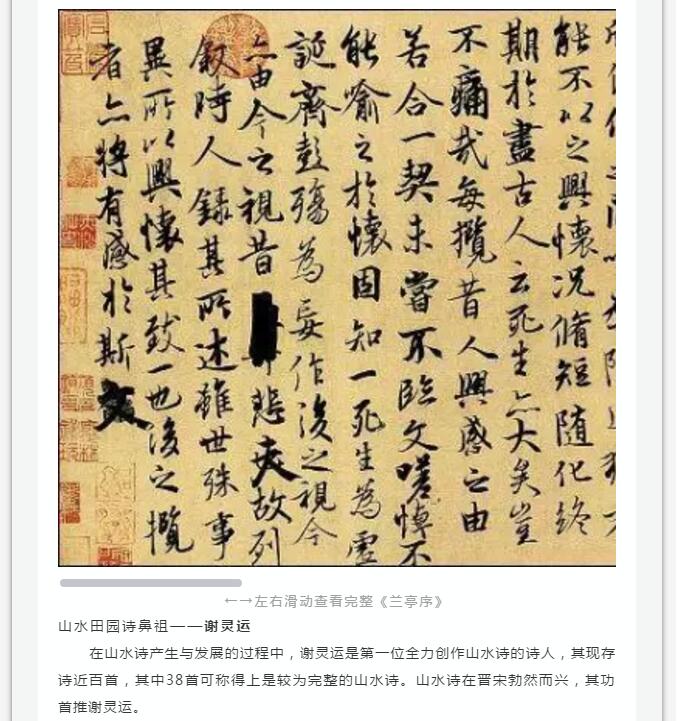 能不以之興懷況脩短随化終
期於盡古人云死生亦大矣豈
不痛哉每攬昔人興感之由
若合一契未嘗不臨文嗟悼不
能喻之於懷固知一死生為虛
誕齊彭殤為妄作後之視今
亦由今之視昔悲夫故列
叙時人錄其所述雖世殊事
異所以興懷其致一也後之攬
者亦將有感於斯文
←→左右滑动查看完整《兰亭序》
山水田园诗鼻祖——谢灵运
在山水诗产生与发展的过程中，谢灵运是第一位全力创作山水诗的诗人，其现存
诗近百首，其中38首可称得上是较为完整的山水诗。山水诗在晋宋勃然而兴，其功
首推谢灵运。